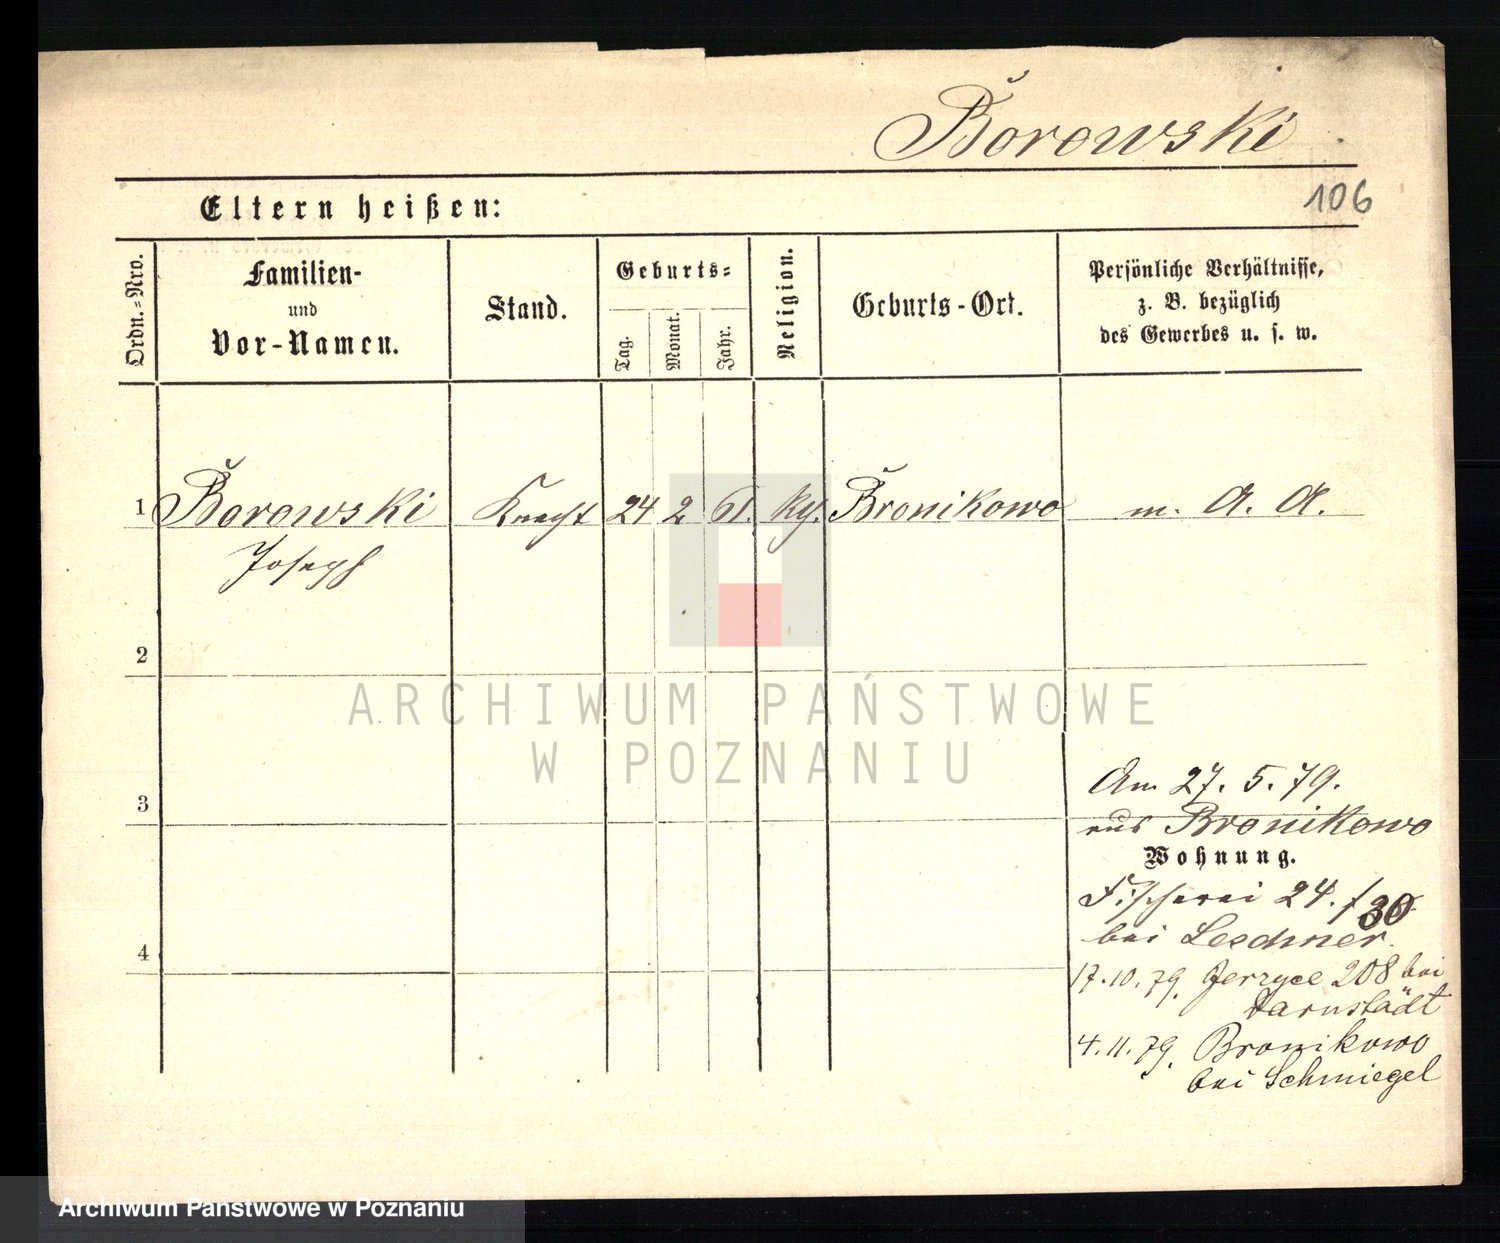 Borowski
106
Eltern heißen:
Ordn.=Nro.
Familien-
und
Vor-Namen.
Stand.
Geburts=
Tag.
Monat.
Jahr.
Religion.
Geburts-Ort.
Persönliche Verhältnisse,
z. B. bezüglich
des Gewerbes u. s. w.
1 Borowski Knecht 24 2 61. Bronikowo m. A. A.
Joseph
2
ARCHIWUM PAŃSTWOWE
W POZNANIU
3
Am 27. 5. 79.
aus Bronikowo
Wohnung.
Fischerei 24. /30
bei Leschner.
4
17.10.79. Jerzyce 208 bei
4.11.79. Bronikowo
bei Schmiegel
Archiwum Państwowe w Poznaniu